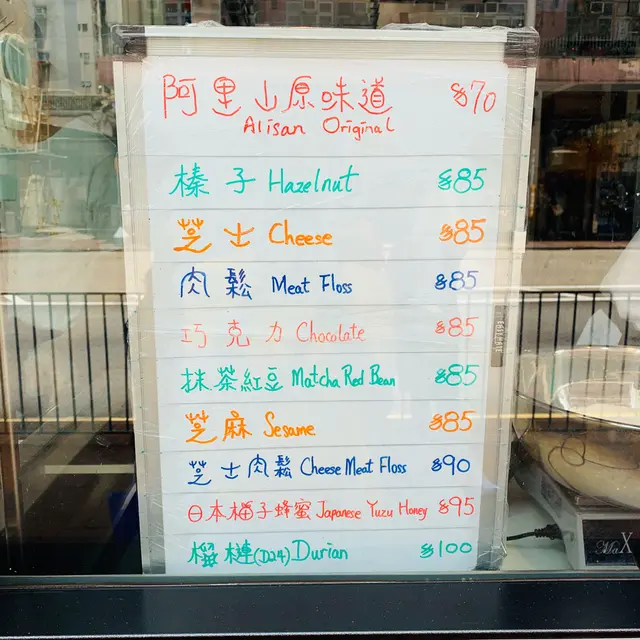 阿里山原味道 $70
Alisan Original
榛子 Hazelnut $85
芝士 Cheese $85
肉鬆 Meat Floss $85
巧克力 Chocolate $85
抹茶紅豆 Matcha Red Bean $85
芝麻 Sesame $85
芝士肉鬆 Cheese Meat Floss $90
日本柚子蜂蜜 Japanese Yuzu Honey $95
榴槤(D24) Durian $100
MaX